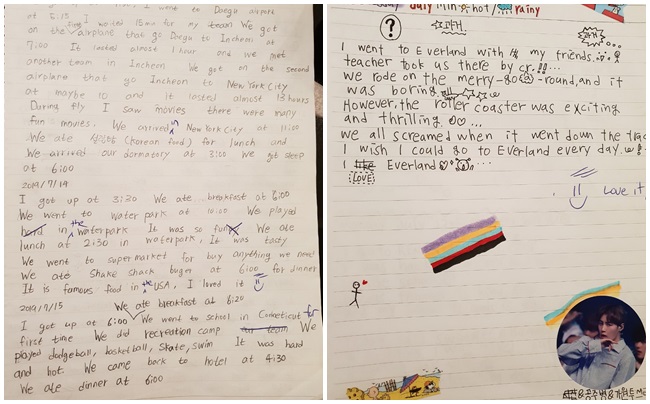 I went to Daegu airport
at 5:15 I waited 15min for my team We got
on the airplane that go Daegu to Incheon at
7:00 It lasted almost 1 hour and we met
another team in Incheon We got on the second
airplane that go Incheon to New York City
at maybe 10 and it lasted almost 13 hours
During fly I saw movies there were many
fun movies. We arrived in New York City at 11:00
We ate (Korean food) for lunch and
We arrived our dormatory at 3:00 We got sleep
at 6:00
2019/7/14
I got up at 3:30 We ate breakfast at 6:00
We went to water park at 10:00 We played
hard in the waterpark It was so fun We ate
lunch at 2:30 in waterpork, It was tasty
We went to supermarket for buy anything we need
We ate Shake shack buger at 6:00 for dinner
It is famous food in the USA, I loved it
2019/7/15 We ate breakfast at 6:20
I got up at 6:00 We went to school in Conneticut for
first time We did recreation camp our team We
played dodgeball, basketball, skate, swim It was hard
and hot We came back to hotel at 4:30
We ate dinner at 6:00
hot rainy
?
I went to Everland with my friends.
teacher took us there by car!!...
we rode on the merry-go-round, and it
was boring.
However, the roller coaster was exciting
and thrilling. ...
we all screamed when it went down the
I wish I could go to Everland every day.
I like Everland ...
LOVE
Love it